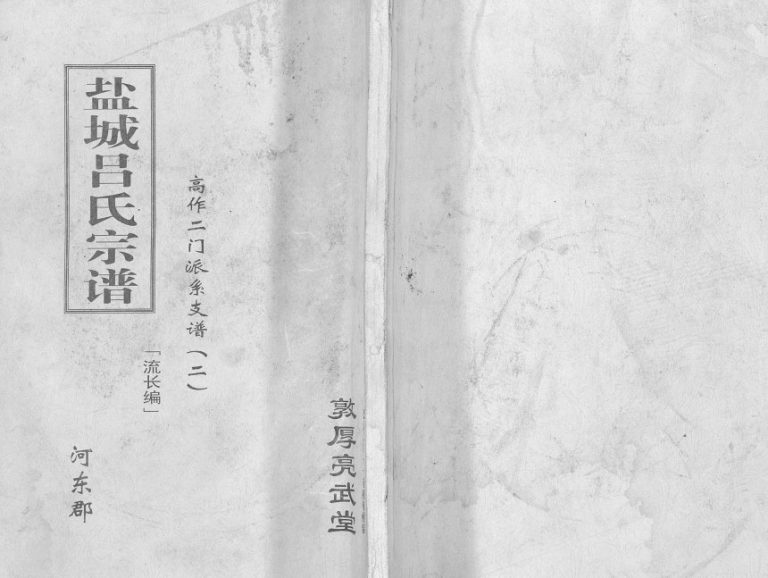 盐城吕氏宗谱
高作二门派系支谱（二）
「流长编」
河东郡
敦厚亮武堂